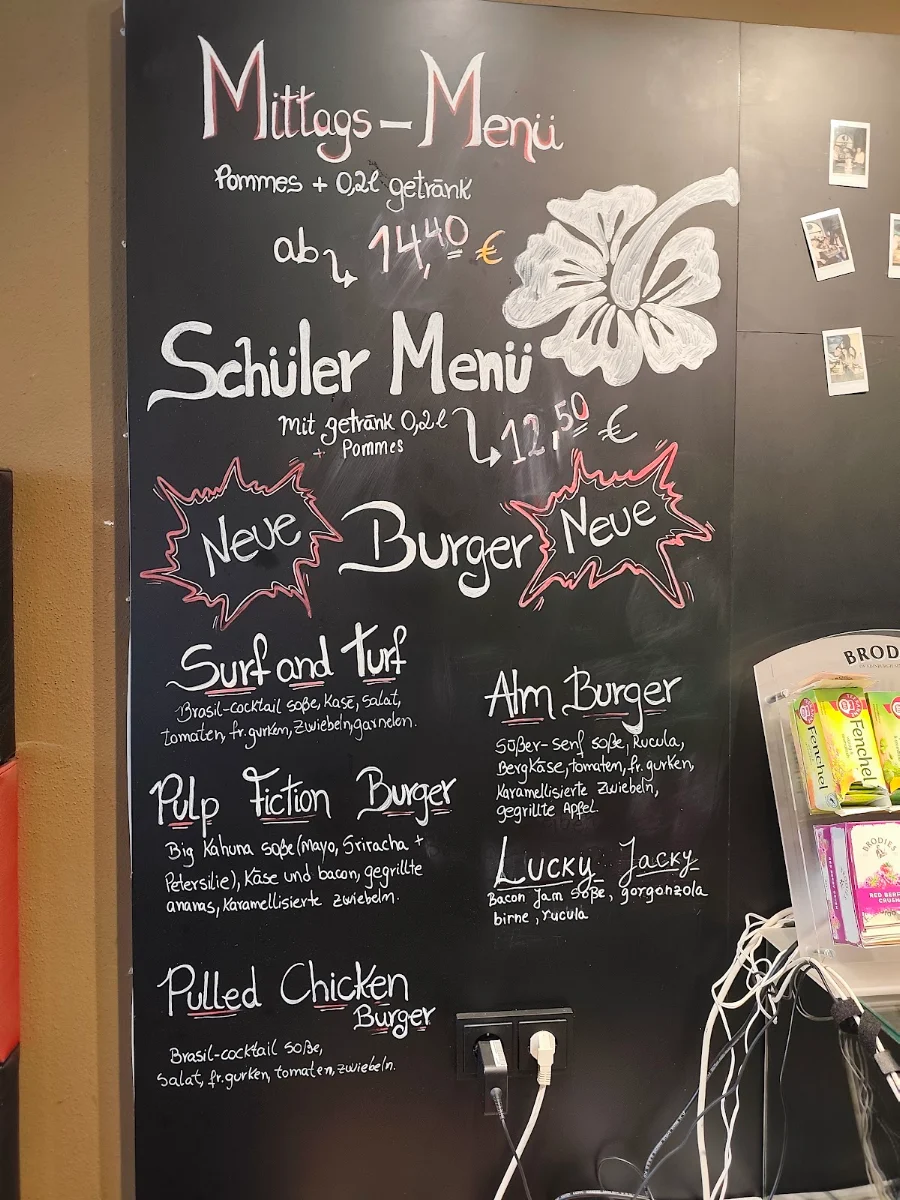 Mittags-Menü
Pommes + 0,2l getränk
ab 14,40 €
Schüler Menü
mit getränk 0,2l
+ Pommes
12,50 €
Neue
Burger
Neue
Surf and Turf
Brasil-cocktail soße, Kase, salat,
tomaten, fr.gurken, zwiebeln, garnelen.
Pulp Fiction Burger
Big Kahuna soße (Mayo, Sriracha +
Petersilie), Käse und bacon, gegrillte
ananas, Karamellisierte zwiebeln.
Pulled Chicken
Burger
Brasil-cocktail soße,
salat, fr.gurken, tomaten, zwiebeln.
Alm Burger
Süßer-senf soße, Rucula,
Bergkäse, tomaten, fr. gurken,
Karamellisierte Zwiebeln,
gegrillte Apfel.
Lucky Jacky
Bacon Jam soße, gorgonzola
birne, rucula
BROD
Fenchel
Fenchel
BRODIES
RED BERR
CRUSH